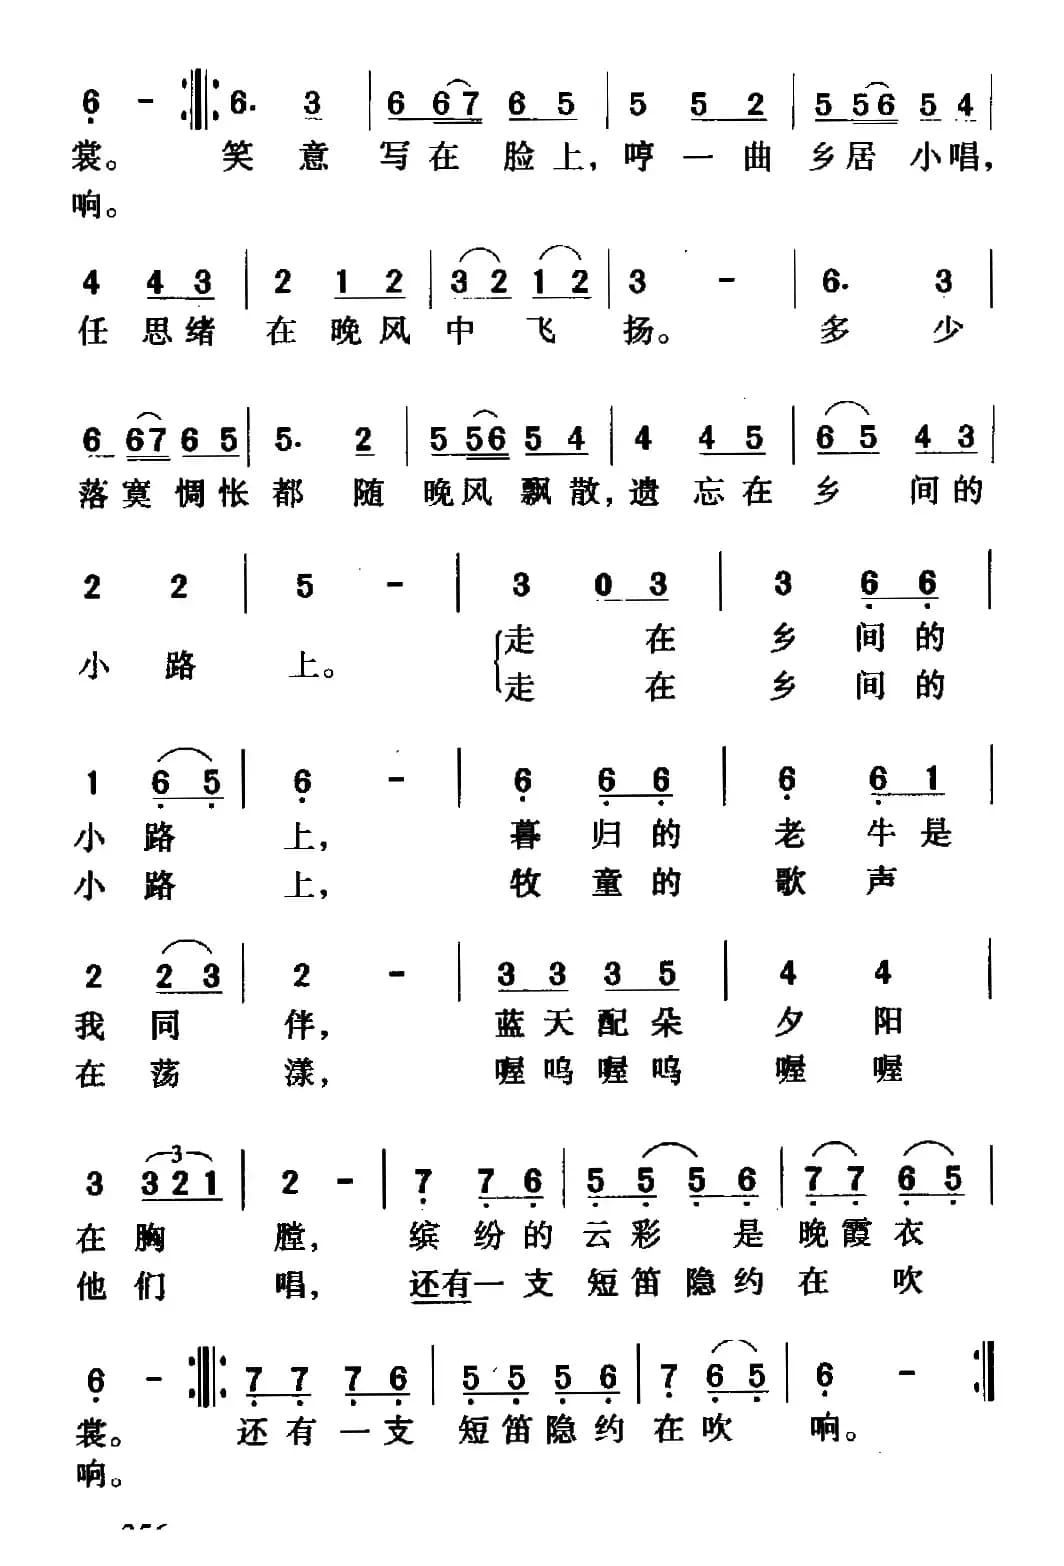 6 - 6. 3 | 6 6 7 6 5 | 5 5 2 | 5 5 6 5 4 |
裳。 笑 意 写 在 脸 上, 哼 一 曲 乡 居 小 唱,
响。
4 4 3 | 2 1 2 | 3 2 1 2 | 3 - | 6. 3 |
任 思 绪 在 晚 风 中 飞 扬。 多 少
6 6 7 6 5 | 5. 2 | 5 5 6 5 4 | 4 4 5 | 6 5 4 3 |
落 寞 惆 怅 都 随 晚 风 飘 散, 遗 忘 在 乡 间 的
2 2 | 5 - | 3 0 3 | 3 6 6 |
小 路 上。 走 在 乡 间 的
走 在 乡 间 的
1 6 5 | 6 - | 6 6 6 | 6 6 1
小 路 上, 暮 归 的 老 牛 是
小 路 上, 牧 童 的 歌 声
2 2 3 | 2 - | 3 3 3 5 | 4 4 |
我 同 伴, 蓝 天 配 朵 夕 阳
在 荡 漾, 喔 呜 喔 呜 喔 喔
3
3 3 2 1 | 2 - | 7 7 6 | 5 5 5 6 | 7 7 6 5 |
在 胸 膛, 缤 纷 的 云 彩 是 晚 霞 衣
他 们 唱, 还 有 一 支 短 笛 隐 约 在 吹
6 - 7 7 7 6 | 5 5 5 6 | 7 6 5 | 6 -
裳。 还 有 一 支 短 笛 隐 约 在 吹 响。
响。